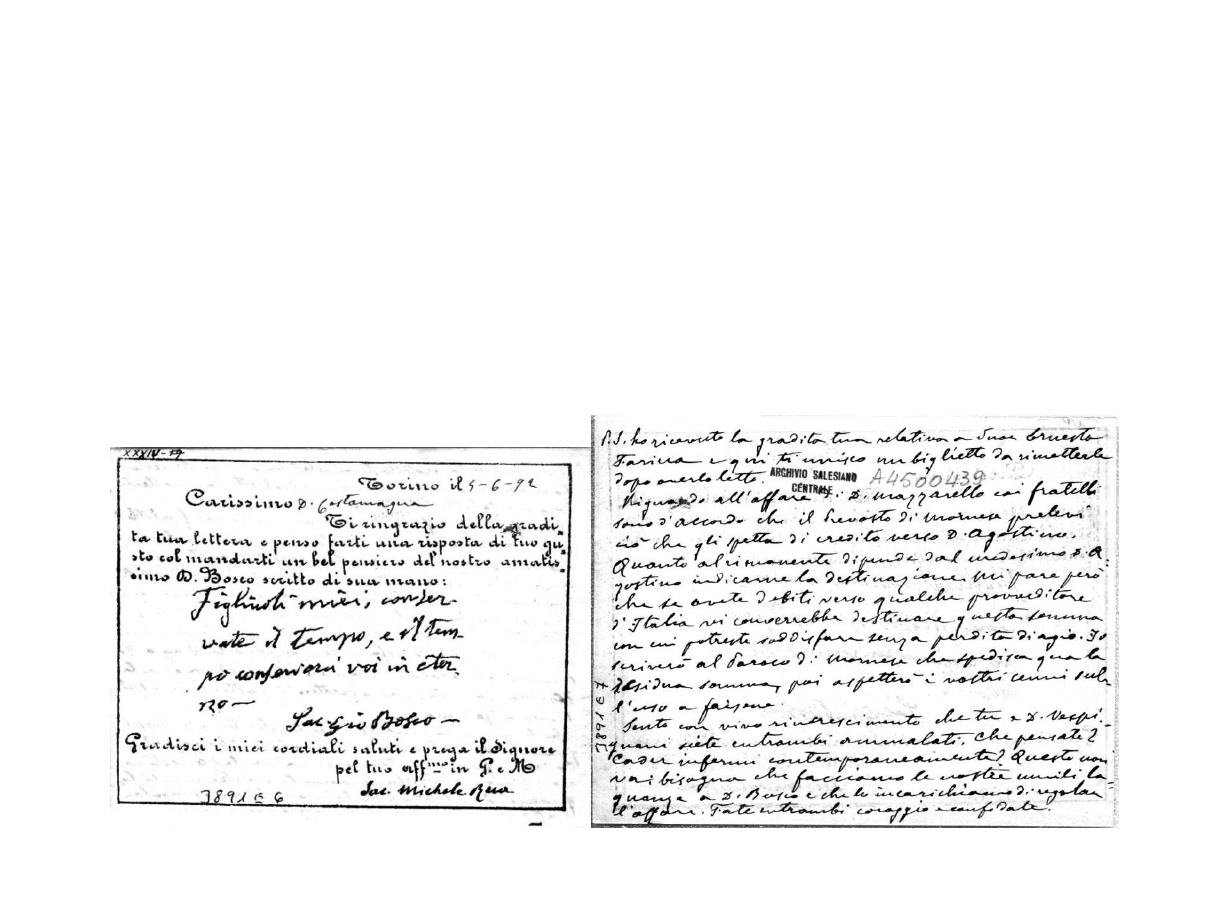 XXXIV-19
Torino il 5-6-92
Carissimo D. Costamagna
Ti ringrazio della gradi-
ta tua lettera e penso farti una risposta di tuo gu-
sto col mandarti un bel pensiero del nostro amatis-
simo D. Bosco scritto di sua mano:
Figliuoli miei, conser-
vate il tempo, e il tem
po conserverà voi in eter
no —
Sac. Gio Bosco —
Gradisci i miei cordiali saluti e prega il Signore
pel tuo aff.mo in G. e M
Sac. Michele Rua
3891 E 6
P.S. ho ricevuto la gradita tua relativa a Suor Ernesta
Farina e qui ti unisco un biglietto da rimetterle
dopo averlo letto.
ARCHIVIO SALESIANO
CENTRALE
A4500439
Riguardo all'affare di D. Mazzarello coi fratelli
sono d'accordo che il Prevosto di Mornese prelevi
ciò che gli spetta di credito verso D. Agostino.
Quanto al rimanente dipende dal medesimo D. A-
gostino indicarne la destinazione. Mi pare però
che se avete debiti verso qualche provveditore
d'Italia vi converrebbe destinare questa somma
con cui potreste soddisfare senza perdita di agio. Io
scriverò al Paroco di Mornese che spedisca qua la
residua somma, poi aspetterò i vostri cenni sul-
l'uso a farsene.
Sento con vivo rincrescimento che tu e D. Vespi-
gnani siete entrambi ammalati. Che pensate?
Cader infermi contemporaneamente? Questo non
va: bisogna che facciamo le nostre umili la-
gnanze a D. Bosco e che lo incarichiamo di regolar
l'affare. Fate entrambi coraggio e confidate.
3891 E 7